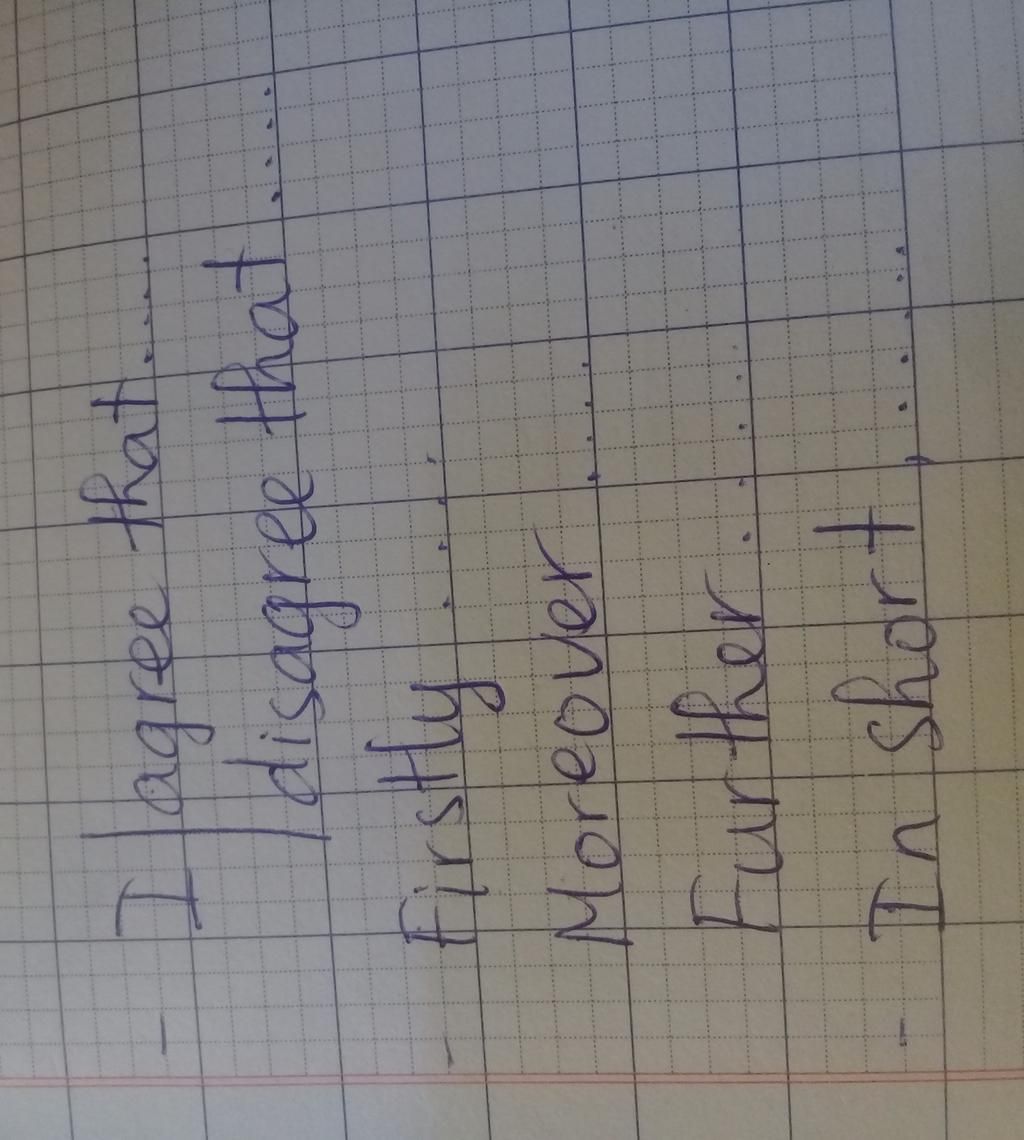 - I agree that.....
disagree that......
- Firstly....
Moreover....
Further.....
- In short, .....